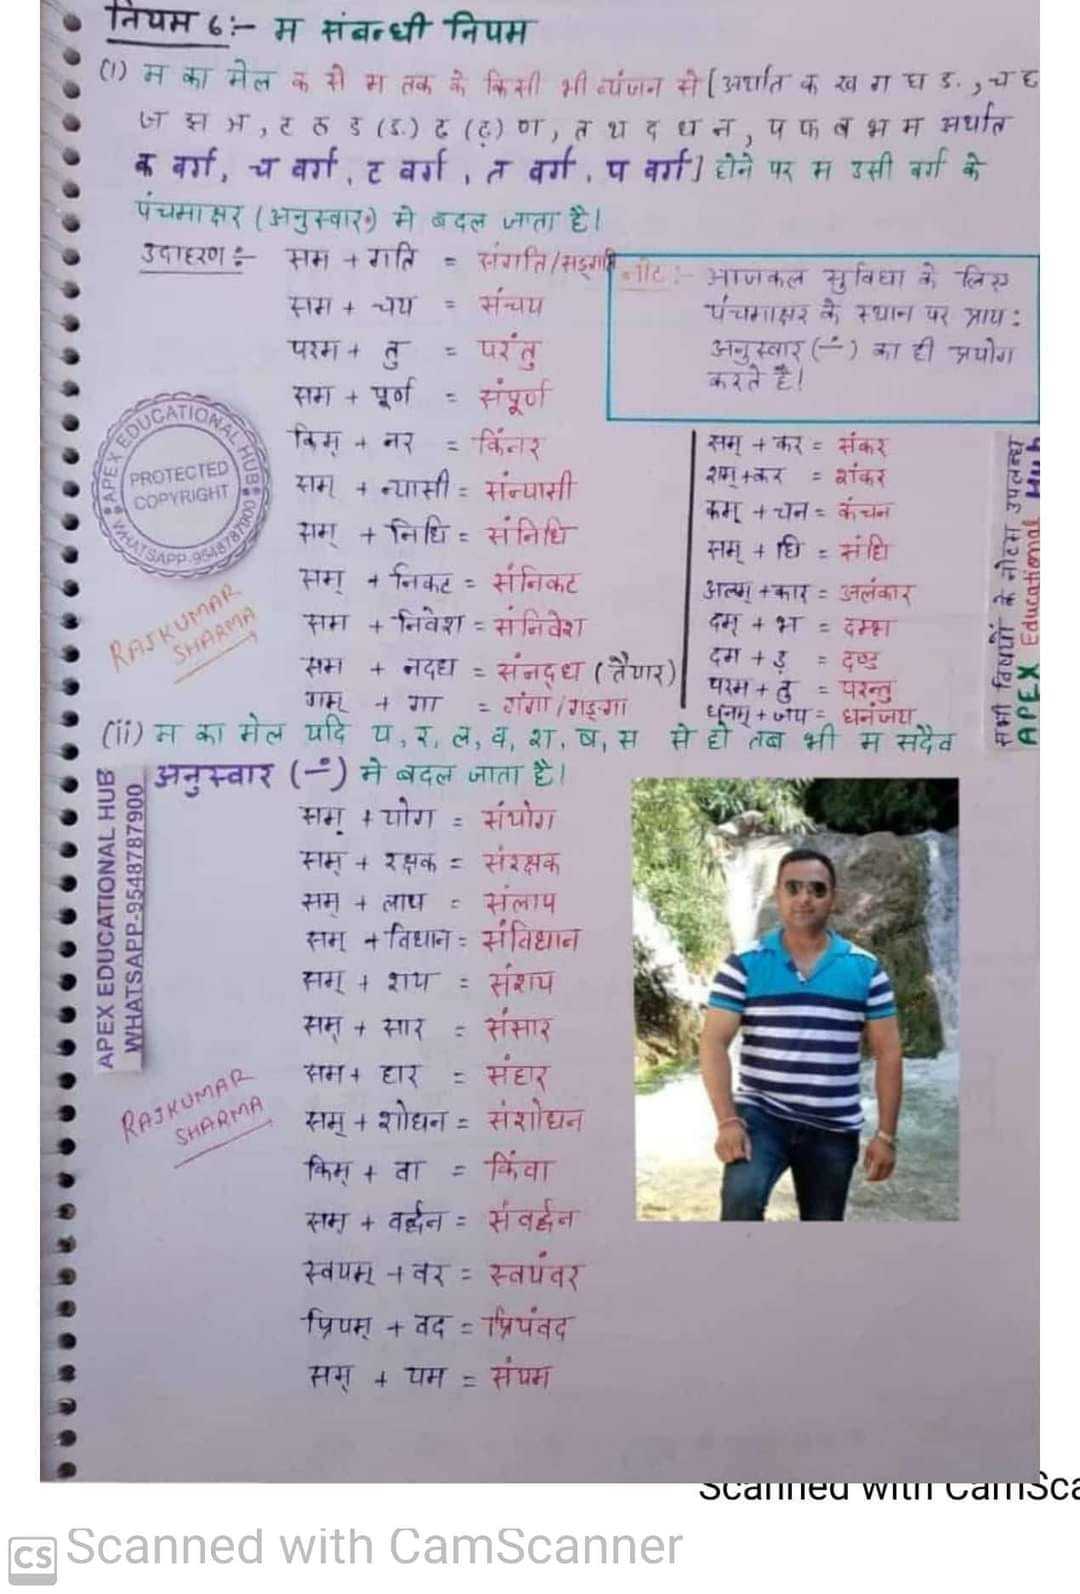 नियम 6:- म संबन्धी नियम
(i) म का मेल क से म तक के किसी भी व्यंजन से [अर्थात क ख ग घ ड., च छ
ज झ ञ, ट ठ ड (ड़) ढ (ढ़) ण, त थ द ध न, प फ ब भ म अर्थात
क वर्ग, च वर्ग, ट वर्ग, त वर्ग, प वर्ग] होने पर म उसी वर्ग के
पंचमाक्षर (अनुस्वार) मे बदल जाता है।
उदाहरण:- सम + गति = संगति/सङ्गति
सम + चय = संचय
परम + तु = परंतु
सम + पूर्ण = संपूर्ण
किम् + नर = किंनर
सम् + न्यासी = संन्यासी
सम् + निधि = संनिधि
सम् + निकट = संनिकट
सम + निवेश = संनिवेश
सम + नदध = संनद्ध (तैयार)
गम् + गा = गंगा/गङ्गा
नोट:- आजकल सुविधा के लिए
पंचमाक्षर के स्थान पर प्राय:
अनुस्वार (∸) का ही प्रयोग
करते है।
सम् + कर = संकर
शम् + कर = शंकर
कम् + चन = कंचन
सम् + धि = संधि
अलम् + कार = अलंकार
दम् + भ = दम्भ
दम + ड = दण्ड
परम + तु = परन्तु
धनम् + जय = धनंजय
(ii) म का मेल यदि य, र, ल, व, श, ष, स से हो तब भी म सदैव
अनुस्वार (∸) मे बदल जाता है।
सम् + योग = संयोग
सम् + रक्षक = संरक्षक
सम् + लाप = संलाप
सम् + विधान = संविधान
सम् + शय = संशय
सम् + सार = संसार
सम + हार = संहार
सम् + शोधन = संशोधन
किम् + वा = किंवा
सम् + वर्द्धन = संवर्द्धन
स्वयम् + वर = स्वयंवर
प्रियम् + वद = प्रियंवद
सम् + यम = संयम
APEX EDUCATIONAL HUB
PROTECTED
COPYRIGHT
WHATSAPP-9548787900
RAJKUMAR
SHARMA
सभी विषयों के नोटस उपलब्ध
APEX Educational Hub
APEX EDUCATIONAL HUB
WHATSAPP-9548787900
RAJKUMAR
SHARMA
Scanned with CamSca
CS Scanned with CamScanner